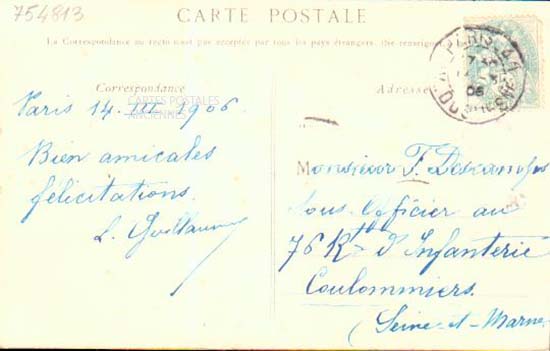 754813
CARTE POSTALE
La Correspondance au recto n'est pas acceptée par tous les pays étrangers. (Se renseigner
Correspondance
Adresse
CARTES POSTALES
ANCIENNES
PARIS
06
Paris 14 III 1906
Bien amicales
félicitations.
L. Guillaume
Monsieur F. Descamps
sous officier au
76 Rth d'Infanterie
Coulommiers.
(Seine-et-Marne